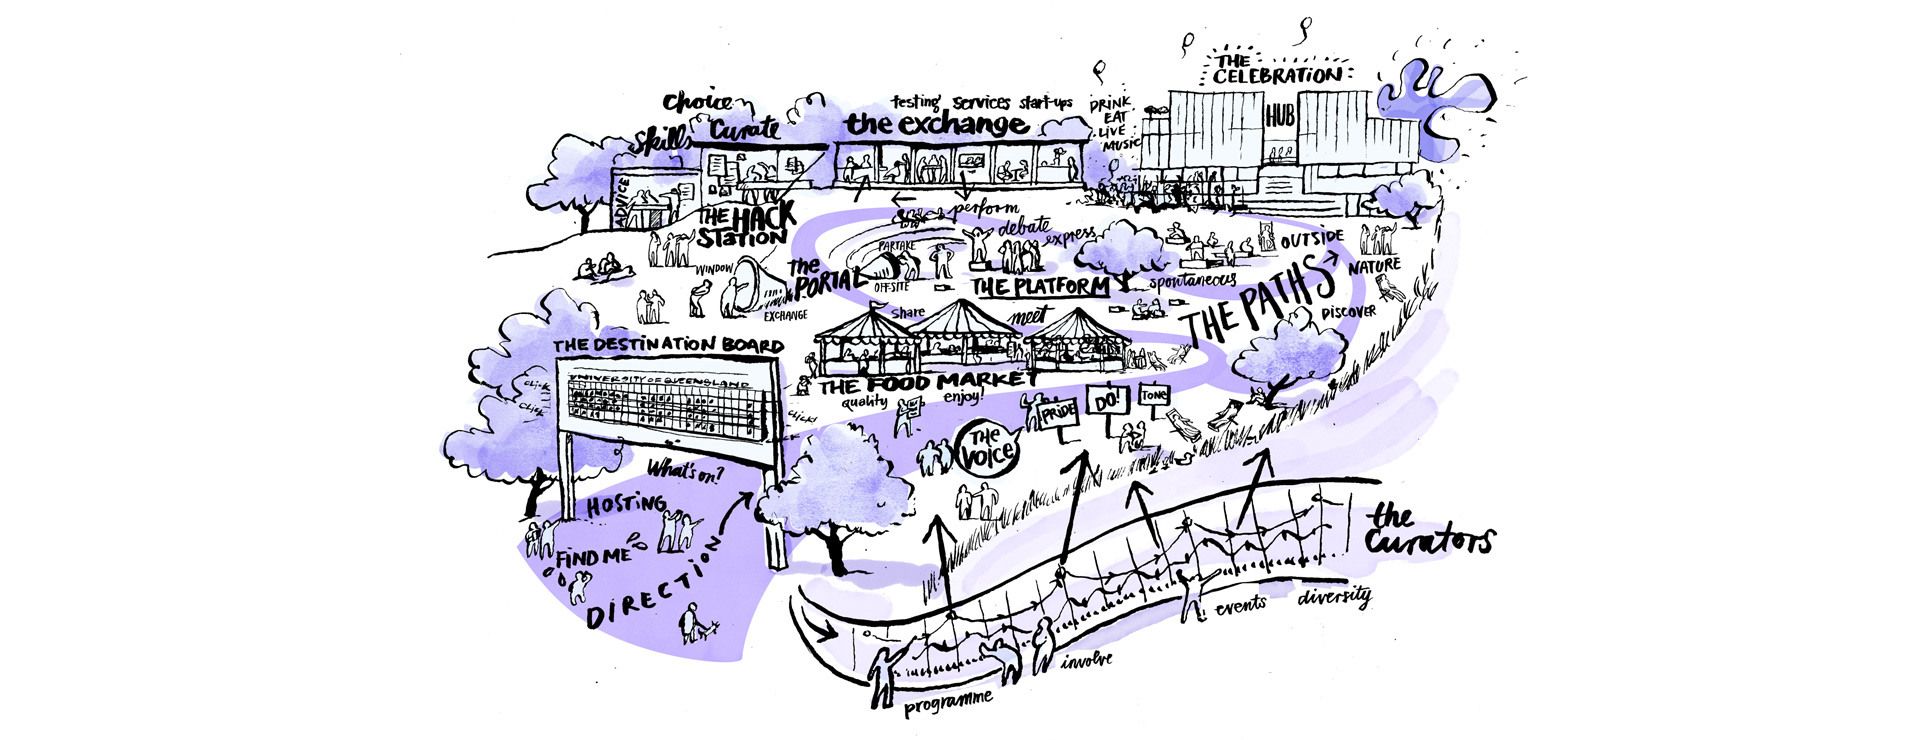 THE
CELEBRATION
HUB
Choice
Skills
Curate
testing services start-ups
the exchange
DRINK
EAT
LIVE
MUSIC
ADVICE
THE HACK
STATION
perform
debate
express
PARTAKE
OFFSITE
THE PLATFORM
spontaneous
OUTSIDE
NATURE
THE PATHS
DISCOVER
WINDOW
the
PORTAL
EXCHANGE
share
meet
THE FOOD MARKET
quality
enjoy!
THE DESTINATION BOARD
UNIVERSITY OF QUEENSLAND
click
click
click
What's on?
HOSTING
FIND ME
DIRECTION
THE
VOICE
PRIDE
DO!
TONE
the
Curators
programme
involve
events
diversity